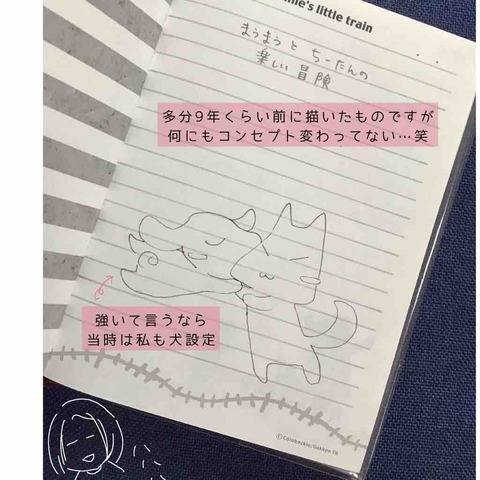 nie's little train
まうまうと ちーたんの
楽しい 冒険
多分9年くらい前に描いたものですが
何にもコンセプト変わってない…笑
強いて言うなら
当時は私も犬設定